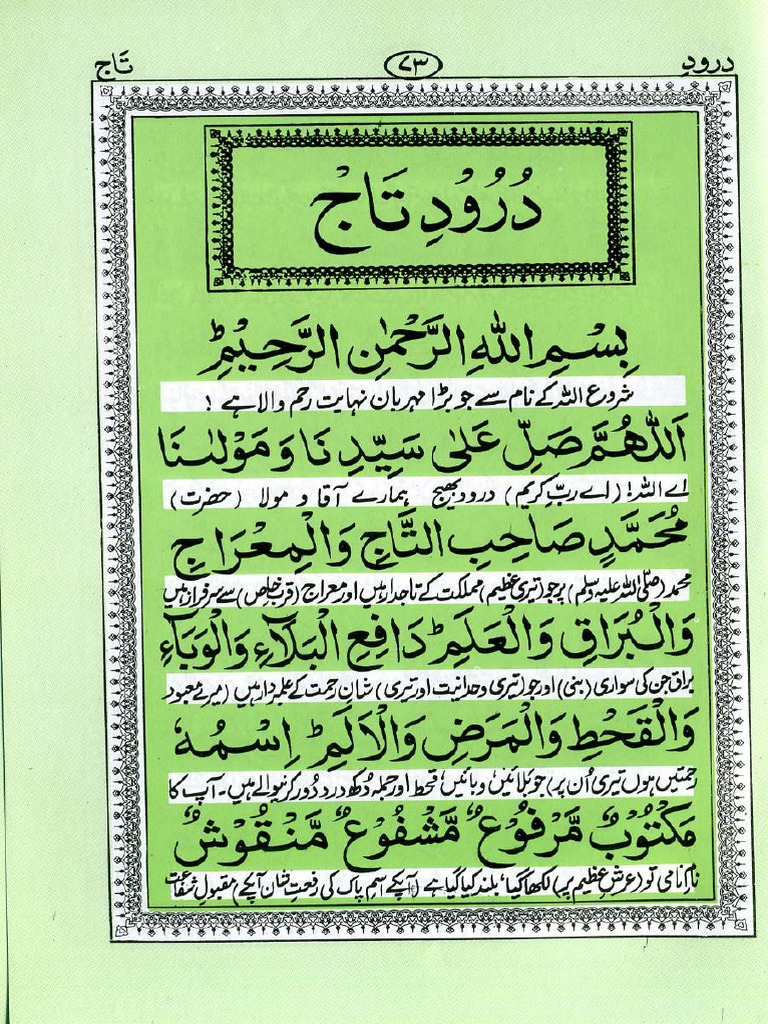 درودِ ۷۳ تاج
دُرُوْدِ تَاجْ
بِسْمِ اللّٰهِ الرَّحْمٰنِ الرَّحِیْمِ ؕ
شروع اللہ کے نام سے جو بڑا مہربان نہایت رحم والا ہے !
اَللّٰهُمَّ صَلِّ عَلٰی سَیِّدِنَا وَ مَوْلٰىنَا
اے اللہ! (اے ربِّ کریم) درود بھیج ہمارے آقا و مولا (حضرت)
مُحَمَّدٍ صَاحِبِ التَّاجِ وَالْمِعْرَاجِ
محمد (صلی اللہ علیہ وسلم) پر جو (تیری عظیم) مملکت کے تاجدار ہیں اور معراج (قربِ خاص) سے سرفراز ہیں
وَالْبُرَاقِ وَالْعَلَمِ ؕ دَافِعِ الْبَلَآءِ وَالْوَبَآءِ
براق جن کی سواری (بنی) اور جو (تیری وحدانیت اور تیری) شانِ رحمت کے علمبردار ہیں (میرے معبود
وَالْقَحْطِ وَالْمَرَضِ وَالْاَلَمِ ؕ اِسْمُهٗ
رحمتیں ہوں تیری اُن پر) جو بلائیں وبائیں قحط اور جملہ دُکھ درد دُور کرنیوالے ہیں۔ آپ کا
مَكْتُوْبٌ مَّرْفُوْعٌ مَّشْفُوْعٌ مَّنْقُوْشٌ
نامِ نامی تو (عرشِ عظیم پر) لکھا گیا، بلند کیا گیا ہے (آپکے اسمِ پاک کی رفعتِ شان آپکے) مقبولِ شفاعت